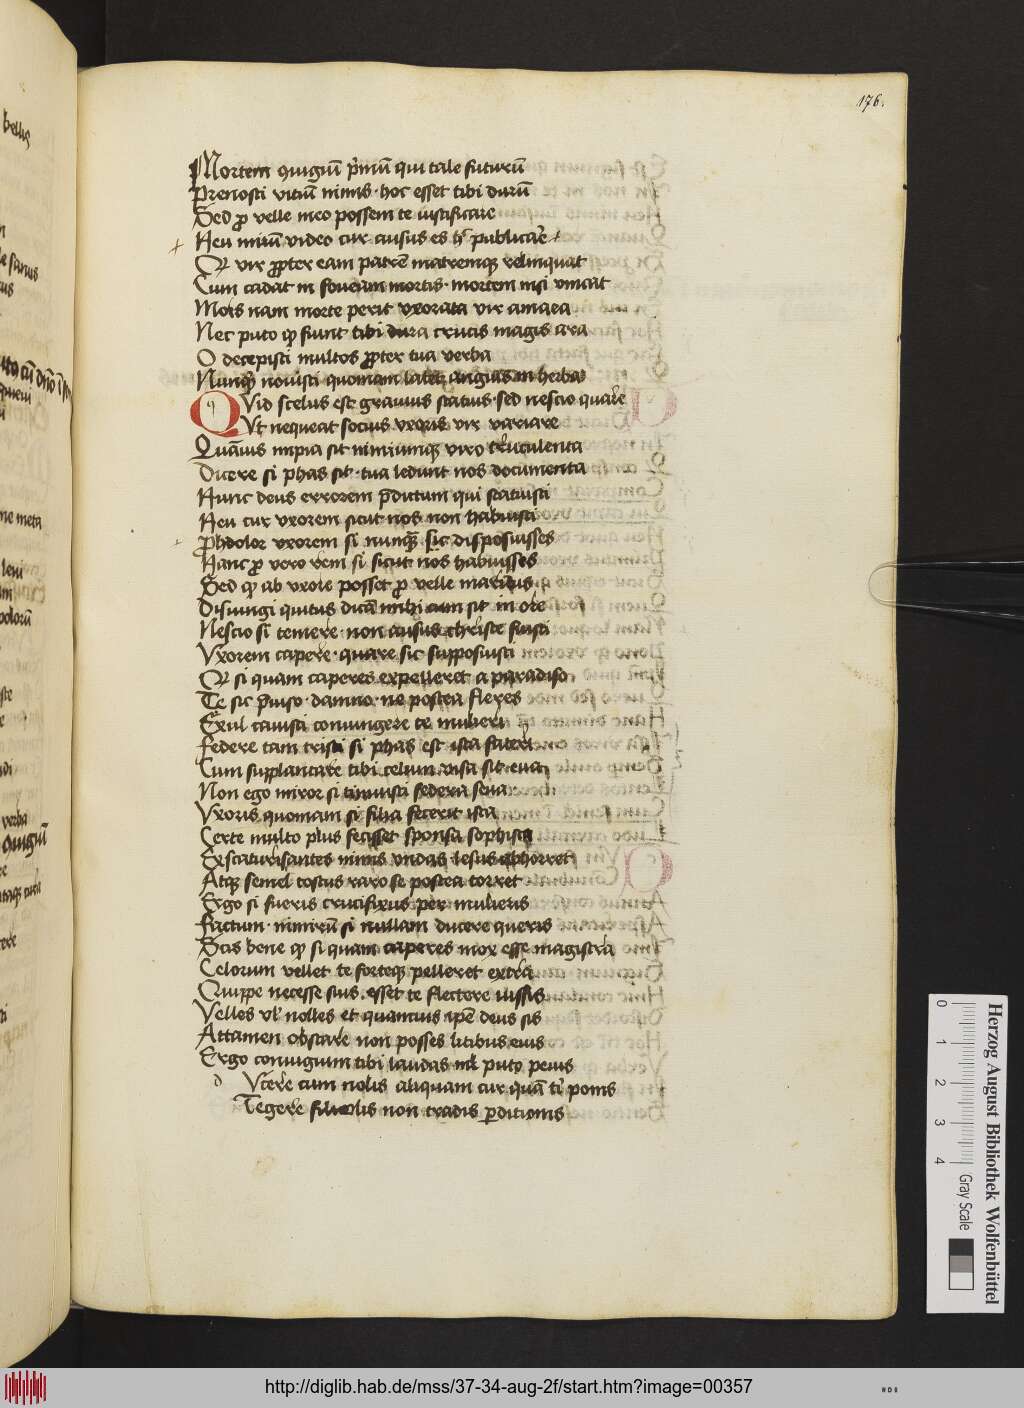 176.
Mortem 9iugiū p̄mū qui tale futurū
Prenosti vitiū nimis · hoc esset tibi durū
Sed ꝓ velle meo possem te iustificare
Heu mirū video cur ausus es h̄ publicāe
Qr vir ꝓpter eam patrē matremqꝫ relinquat
Cum cadat in foueam mortis · mortem nisi vincat
Mors nam morte perit vxorata vir amara
Nec puto qꝫ fiunt tibi dura crucis magis ara
O decepisti multos ꝓpter tua verba
Nunqꝫ nouisti quoniam latet anguis in herba
Quid scelus est grauius status · sed nescio quare
Vt nequeat socius vxoris vir variare
Quāuis impia sit nimiumqꝫ viro truculenta
Dicere si phas sit · tua ledunt nos documenta
Nunc deus errorem p̄dictum qui statuisti
Heu cur vxorem sicut nos non habuisti
Prohdolor vxorem si nunqꝫ sic disposuisses
Hanc ꝓ vero rem si sicut nos habuisses
Sed qꝫ ab vxore posset ꝓ velle maritus
Disiungi quitus dicā mihi cum sit in ore
Nescio si temere · non ausus christe fuisti
Vxorem capere · quare sic supposuisti
Qr si quam caperes expelleret a paradiso
Te sic p̄uiso · damno · ne postea fleres
Exul cauisti coniungere te mulieri
Federe tam tristi si phas est ista fateri
Cum supplantare tibi celum visa sit eua
Non ego miror si timuisti federa seua
Vxoris quoniam si filia fecerit ista
Certe multo plus fecisset sponsa sophista
Exscaturisantes nimis vndas iesus abhorret
Atqꝫ semel tostus raro se postea torret
Ergo si fueris crucifixus per mulieris
Factum · nimirū si nullam ducere queris
Scas bene qꝫ si quam caperes mox esse magistra
Celorum vellet te forteqꝫ pelleret extra
Quippe necesse suis esset te flectere iussis
Velles vl' nolles et quamuis ipē deus sis
Attamen obstare non posses litibus eius
Ergo coniugium tibi laudas nil puto peius
Vtere cum nolis aliquam cur quā ti' ponis
Tegere non tradis ꝑditionis
Herzog August Bibliothek Wolfenbüttel
0 1 2 3 4 Gray Scale
http://diglib.hab.de/mss/37-34-aug-2f/start.htm?image=00357